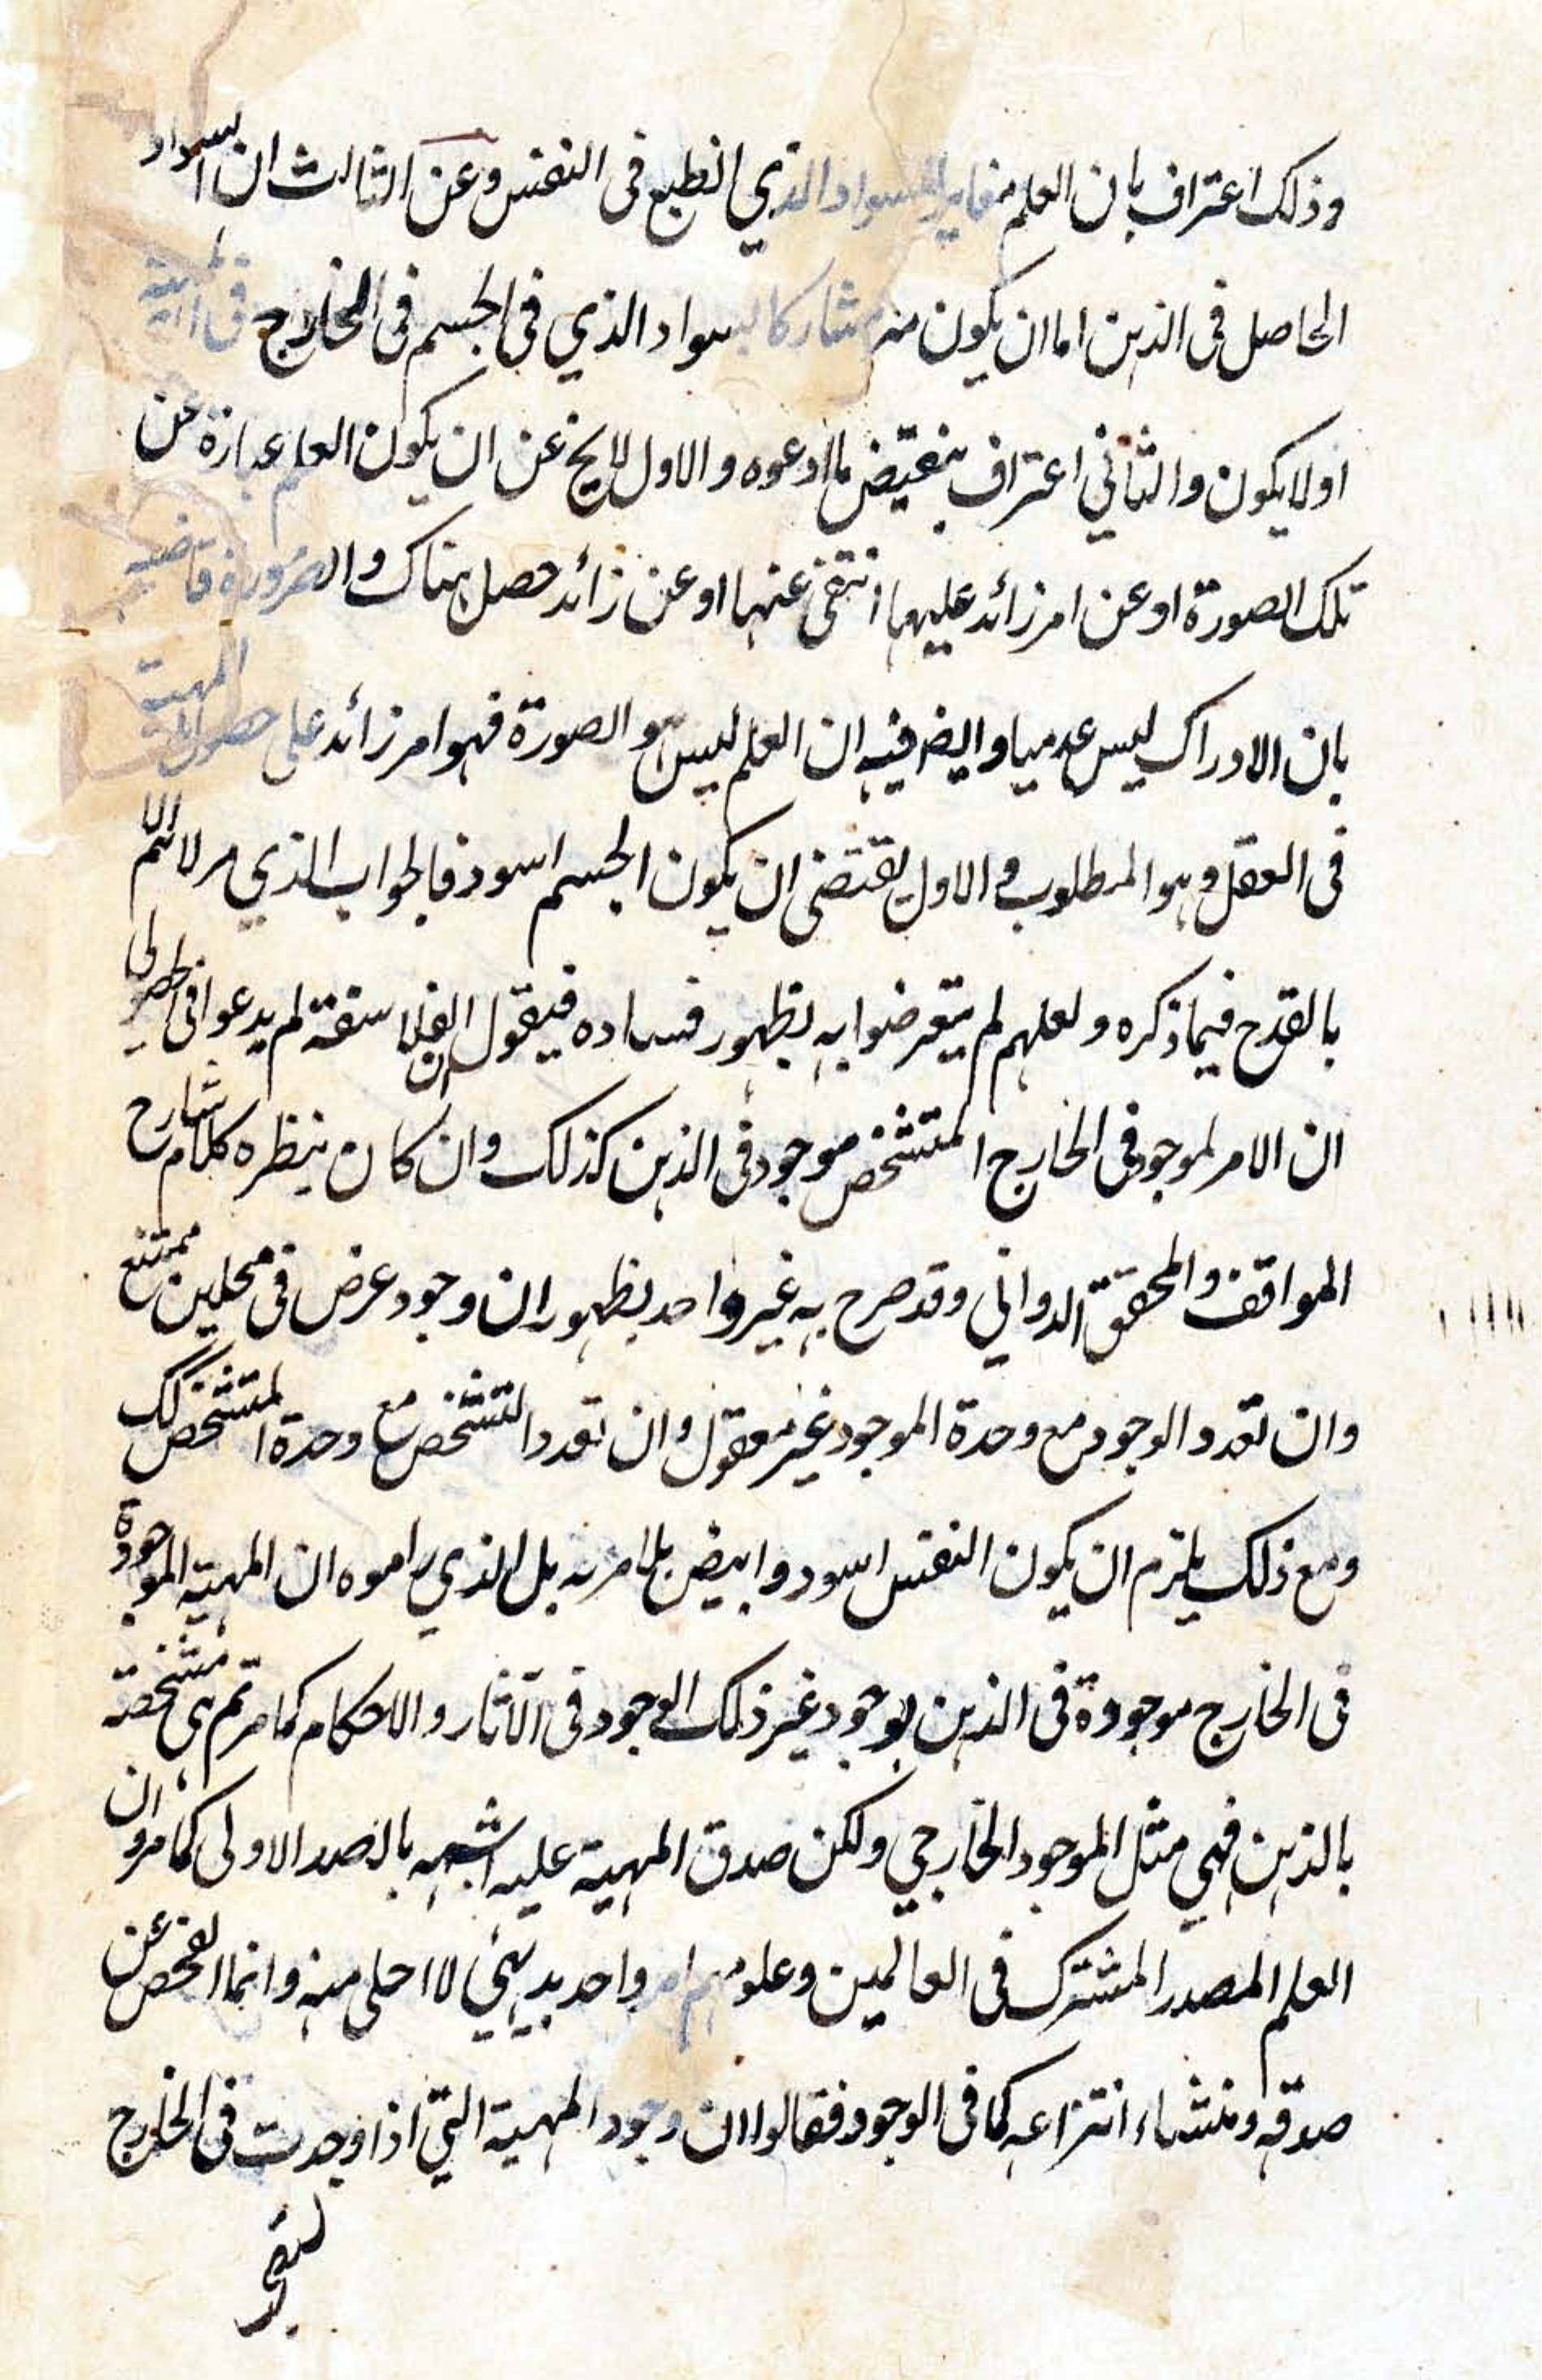 وذلك اعتراف بان العلم مغاير للسواد الذي انطبع فى النفس وعن الثالث ان السواد
الحاصل فى الذهن اما ان يكون مشاركا لسواد الذي فى الجسم فى الخارج فى
او لا يكون والثاني اعتراف بنقيض ما ادعوه والاول لا يخ عن ان يكون العلم عبارة عن
تلك الصورة او عن امر زائد عليهما انتفى عنها او عن زائد حصل هناك والضرورة قاضية
بان الادراك ليس عدميا وايضا فيه ان العلم ليس هو الصورة فهو امر زائد على حصول المهية
فى العقل وهو المطلوب والاول يقتضى ان يكون الجسم اسود فالجواب الذي مر لا يتم الا
بالقدح فيما ذكره ولعلهم لم يتعرضوا به لظهور فساده فيقول ان الفلاسفة لم يدعوا فى الحصولى
ان الامر لموجود فى الخارج المتشخص موجود فى الذهن كذلك وان كان ينظره كلام شارح
المواقف والمحقق الدوانى وقد صرح به غير واحد بظهور ان وجود عرض فى محلين ممتنع
وان تعدد الوجود مع وحدة الموجود غير معقول وان تعدد التشخص مع وحدة المتشخص كك
ومع ذلك يلزم ان يكون النفس اسود وابيض بلا مرية بل الذي راموه ان المهية الموجودة
فى الخارج موجودة فى الذهن بوجود غير ذلك الوجود فى الآثار والاحكام كما مر ثم هى متشخصة
بالذهن فهي مثل الموجود الخارجي ولكن صدق المهية عليه اشبه بالصدر الاولى كما مر وان
العلم المصدر المشترك فى العالمين وعلومهم امر واحد بديهي لا احلى منه وانما الفحص عن
صدقه ومنشاء انتزاعه كما فى الوجود فقالوا ان وجود المهية التي اذا وجدت فى الخارج